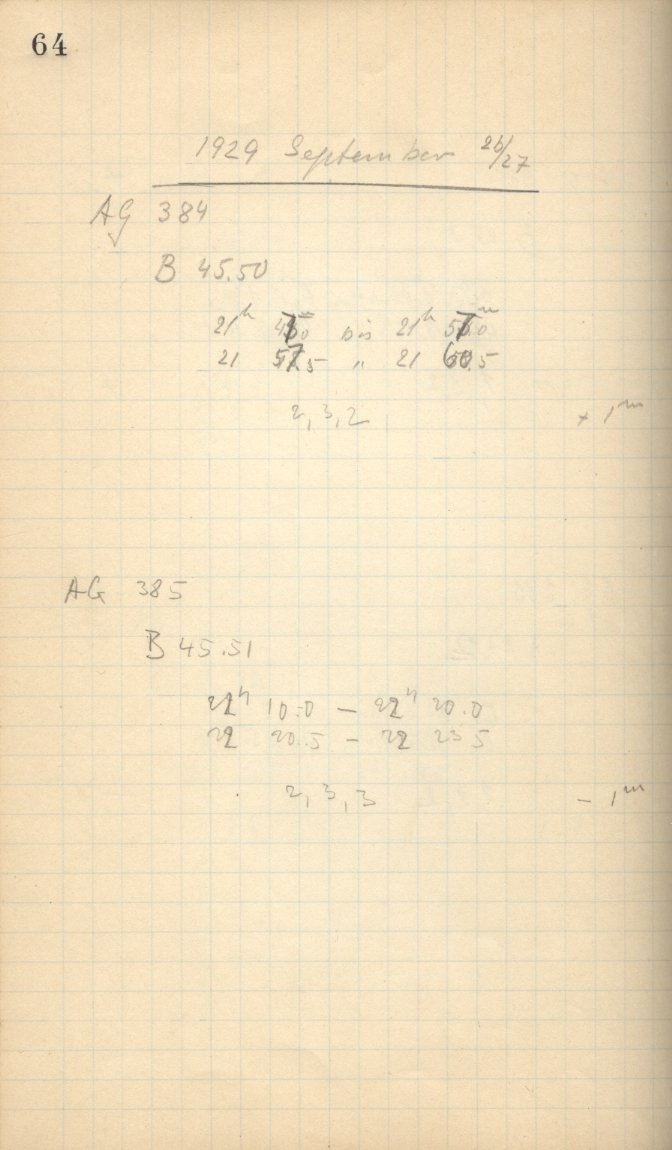 64
1929 September 26/27
AG 384
B 45.50
21h 47.0 bis 21h 57.0
21 57.5 " 21 60.5
2, 3, 2 + 1m
AG 385
B 45.51
22h 10.0 — 22h 20.0
22 20.5 — 22 23 5
2, 3, 3 - 1m